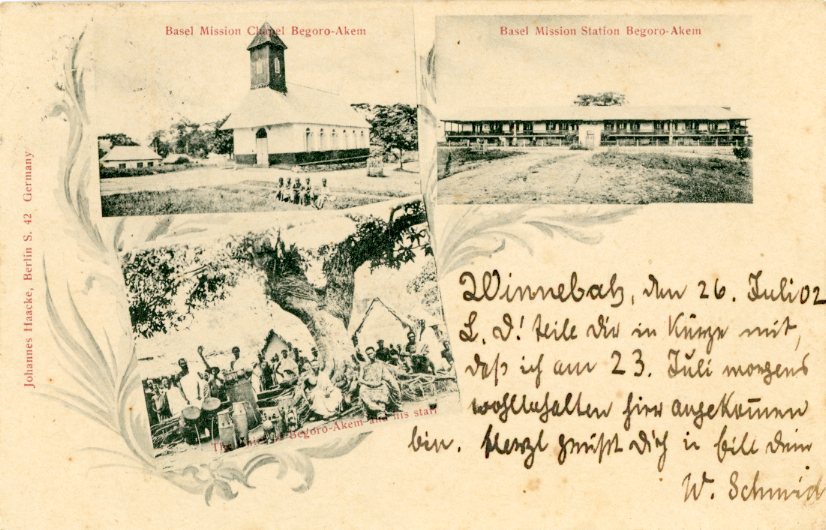 Basel Mission Chapel Begoro-Akem
Basel Mission Station Begoro-Akem
Johannes Haacke, Berlin S. 42 Germany
Begoro-Akem and his staff
Winnebah, den 26. Juli 02
L. D! teile dir in Kürze mit,
daß ich am 23. Juli morgens
wohlbehalten hier angekommen
bin. Herzl grüßt Dich dein
W. Schmid